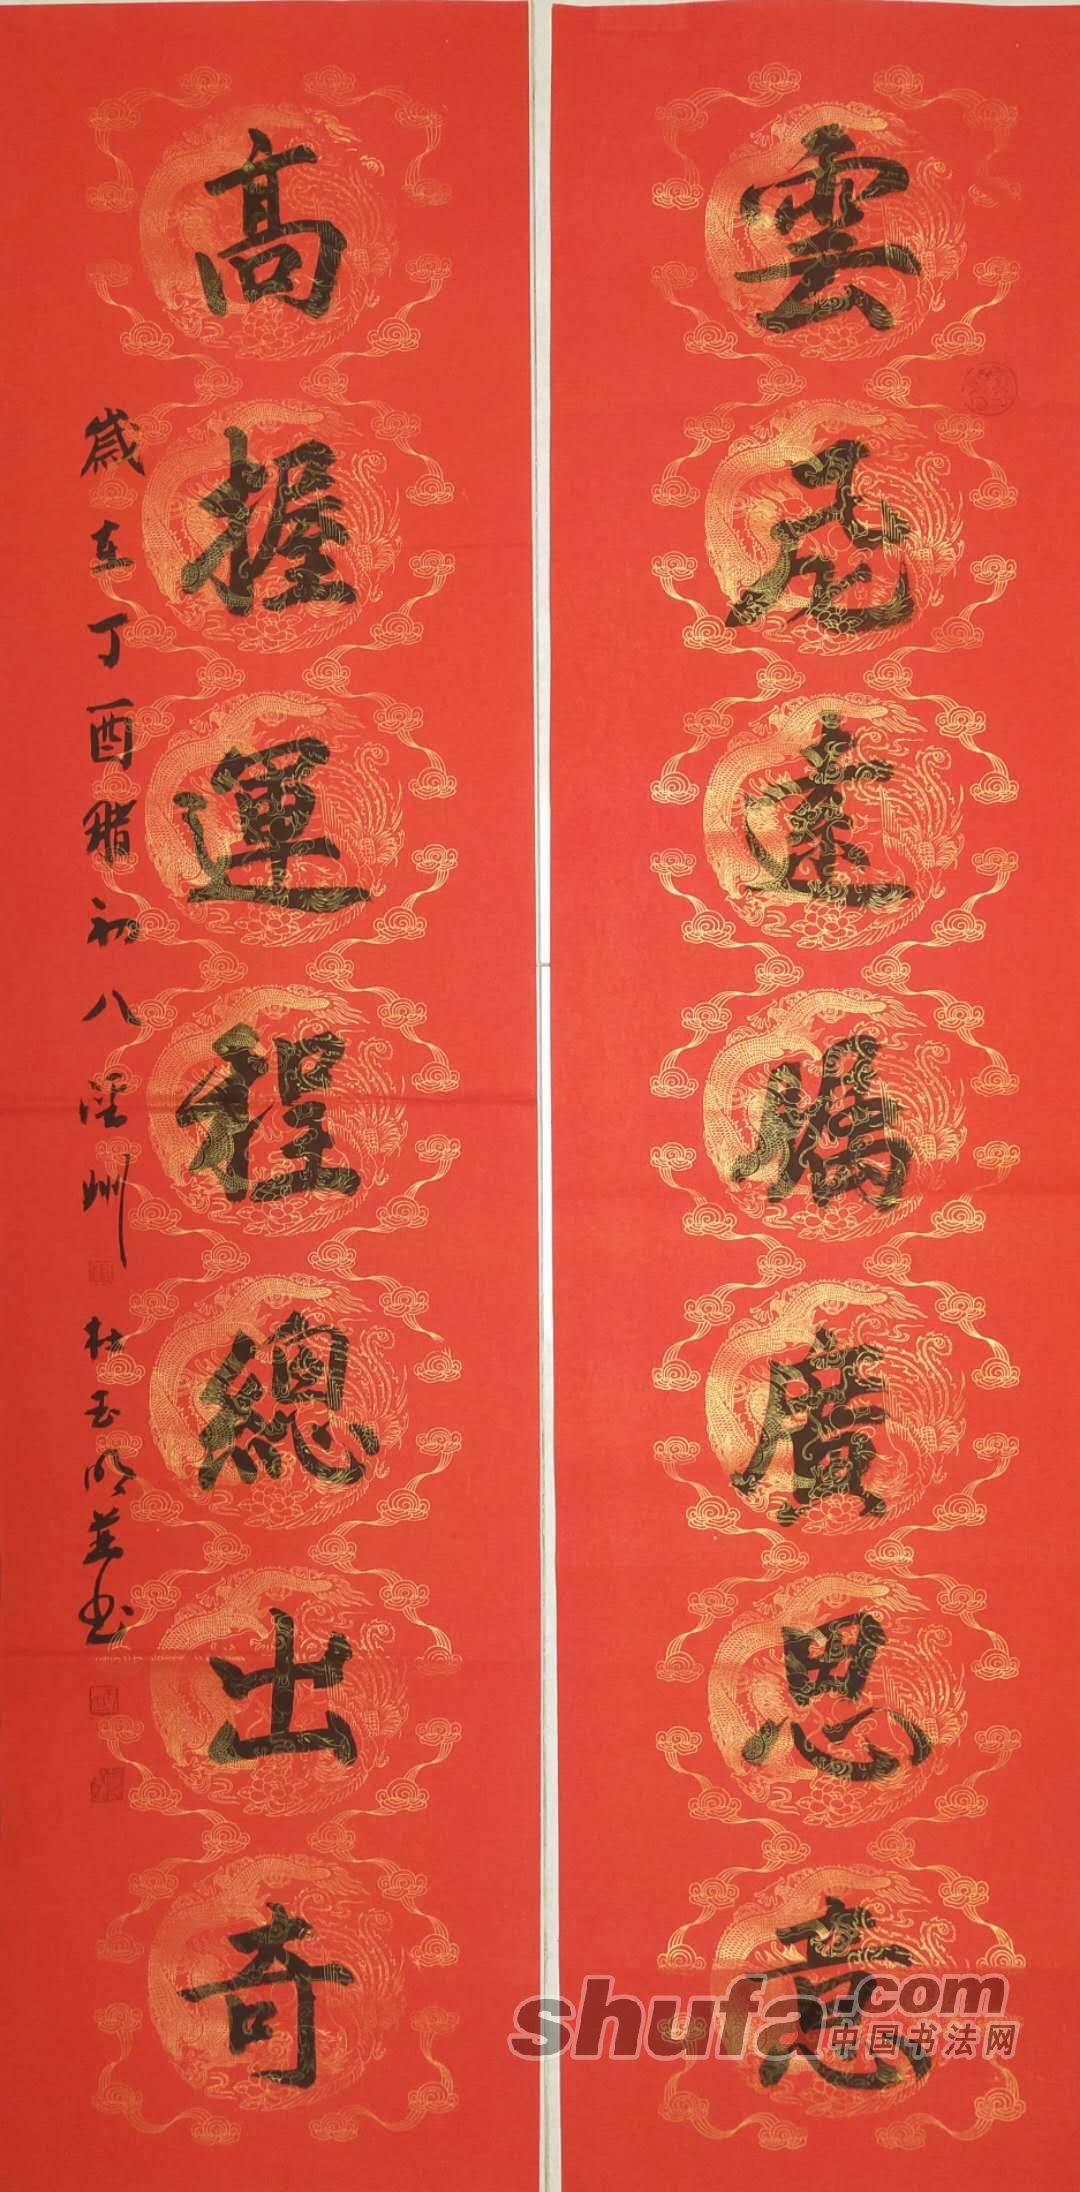 雲遠瞩廣思意
高握運程總出奇
歲在丁酉腊初八涇州
杜玉明並书
shufa.com
中国书法网